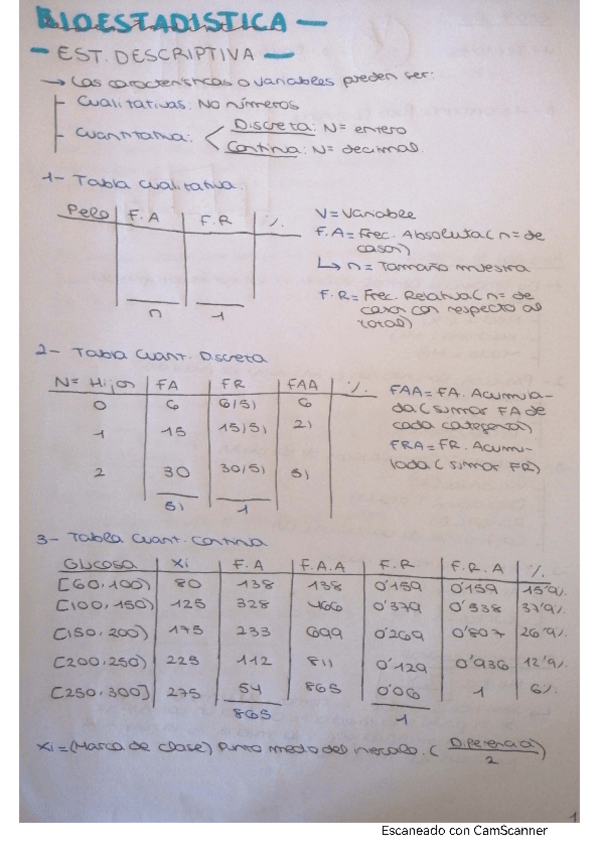 BIOESTADISTICA —
— EST. DESCRIPTIVA —
→ Las características o variables pueden ser:
Cualitativas: No números
Cuantitativa: Discreta: Nº entero
Continua: Nº decimal.
1- Tabla Cualitativa.
Pelo F.A F.R %
n 1
V = Variable
F.A = Frec. Absoluta (nº de
casos)
↳ n = Tamaño muestra
F.R = Frec. Relativa (nº de
casos con respecto al
total)
2- Tabla Cuant. Discreta
Nº Hijos FA FR FAA %
0 6 6/51 6
1 15 15/51 21
2 30 30/51 51
51 1
FAA = FA. Acumula-
da (sumar FA de
cada categoría)
FRA = FR. Acumu-
lada (sumar FR)
3- Tabla Cuant. Continua
Glucosa Xi F.A F.A.A F.R F.R.A %
[60,100) 80 138 138 0'159 0'159 15'9%
[100,150) 125 328 466 0'379 0'538 37'9%
[150,200) 175 233 699 0'269 0'807 26'9%
[200,250) 225 112 811 0'129 0'936 12'9%
[250,300] 275 54 865 0'06 1 6%
865 1
Xi = (Marca de clase) Punto medio del intervalo. (Diferencia/2)
1
Escaneado con CamScanner